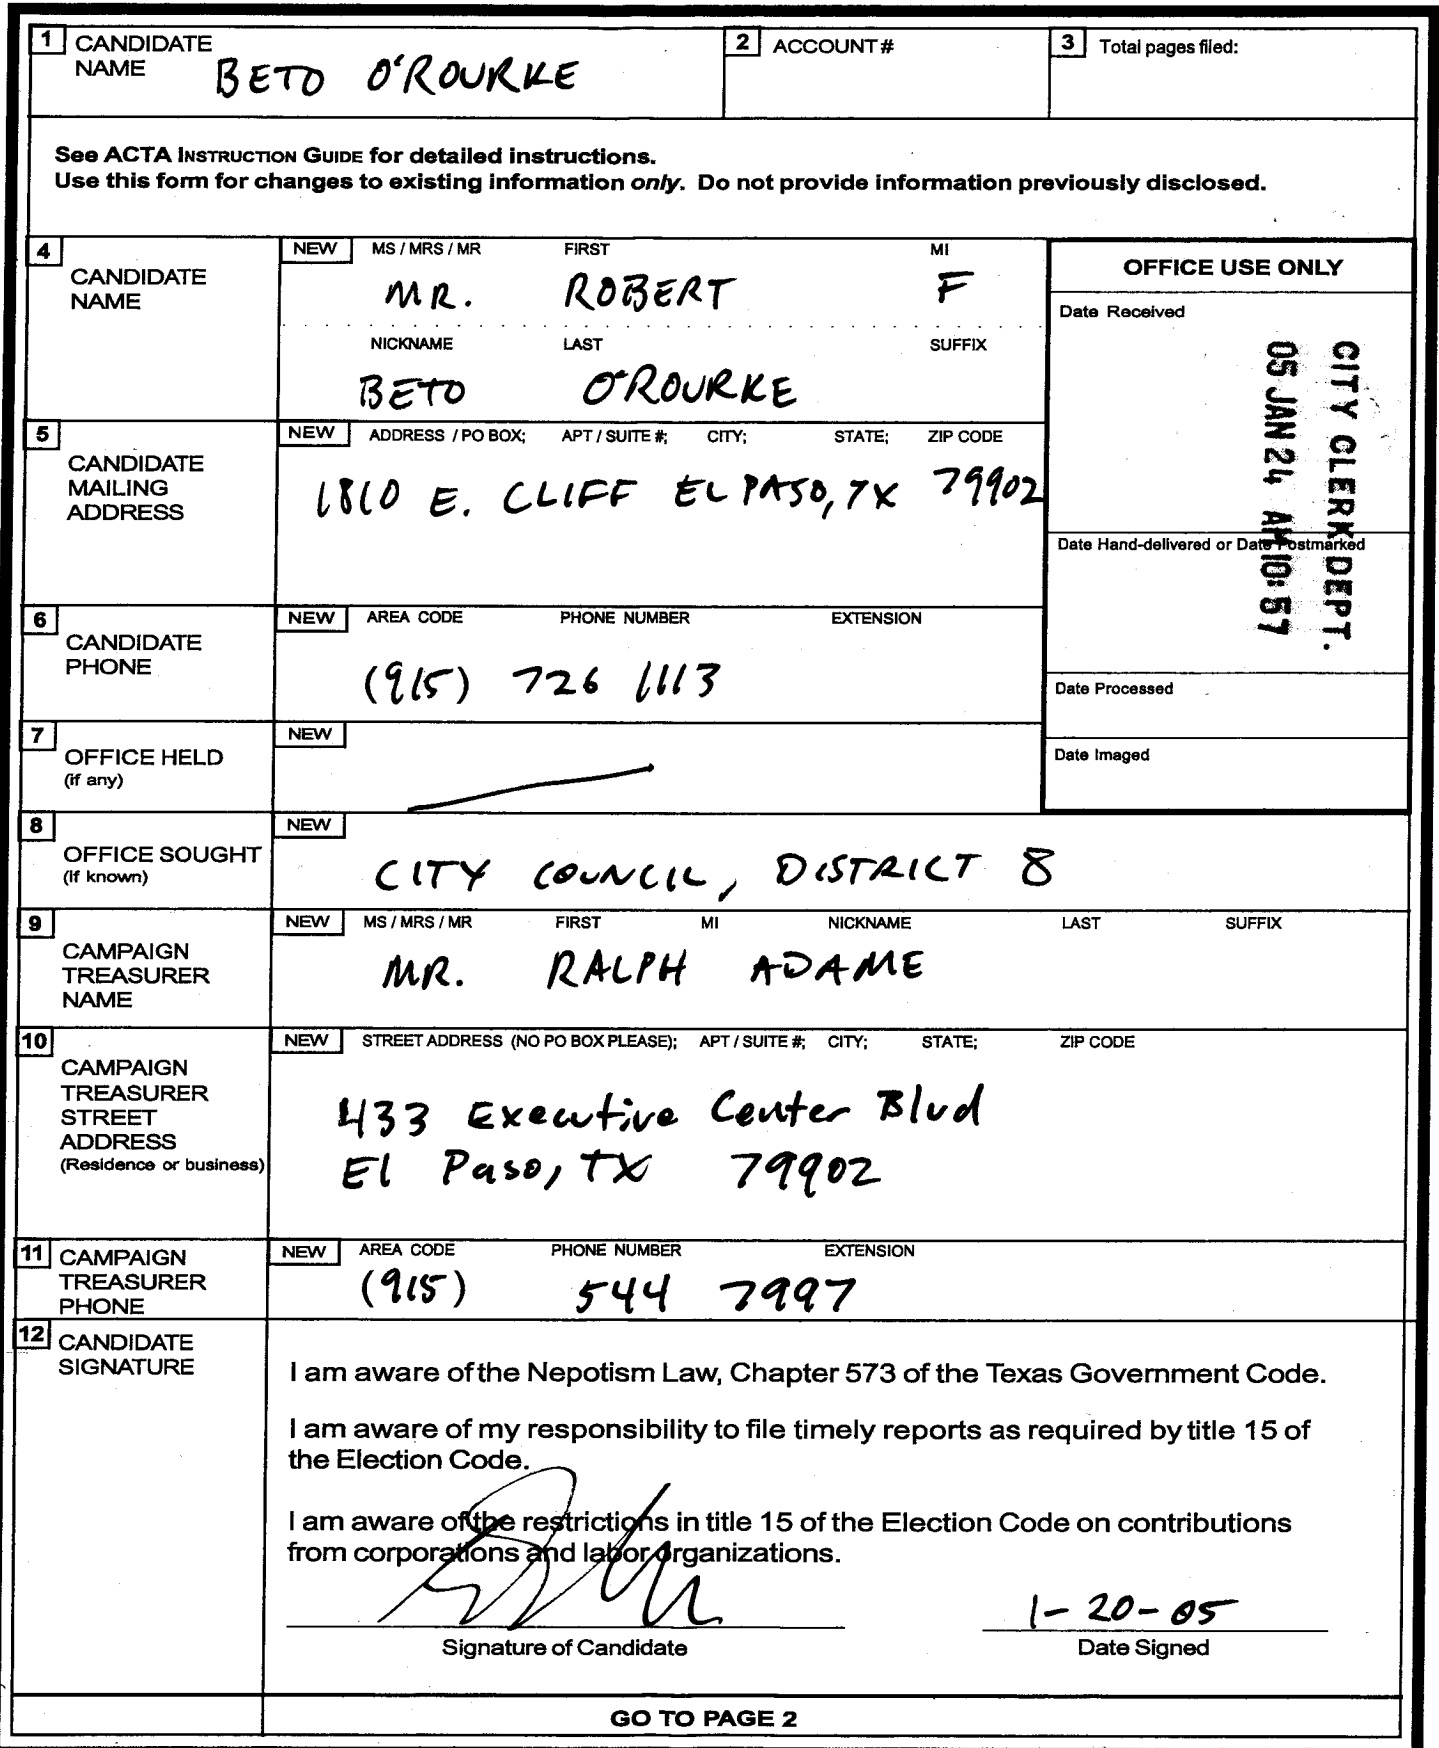 1 CANDIDATE NAME BETO O'ROURKE
2 ACCOUNT #
3 Total pages filed:
See ACTA INSTRUCTION GUIDE for detailed instructions.
Use this form for changes to existing information only. Do not provide information previously disclosed.
4 CANDIDATE NAME
NEW MS / MRS / MR FIRST MI
MR. ROBERT F
NICKNAME LAST SUFFIX
BETO O'ROURKE
OFFICE USE ONLY
Date Received
CITY CLERK DEPT.
05 JAN 24 AM 10:57
Date Hand-delivered or Date Postmarked
Date Processed
Date Imaged
5 CANDIDATE MAILING ADDRESS
NEW ADDRESS / PO BOX; APT / SUITE #; CITY; STATE; ZIP CODE
1810 E. CLIFF EL PASO, TX 79902
6 CANDIDATE PHONE
NEW AREA CODE PHONE NUMBER EXTENSION
(915) 726 1113
7 OFFICE HELD
(if any)
NEW
8 OFFICE SOUGHT
(if known)
NEW
CITY COUNCIL, DISTRICT 8
9 CAMPAIGN TREASURER NAME
NEW MS / MRS / MR FIRST MI NICKNAME LAST SUFFIX
MR. RALPH ADAME
10 CAMPAIGN TREASURER STREET ADDRESS
(Residence or business)
NEW STREET ADDRESS (NO PO BOX PLEASE); APT / SUITE #; CITY; STATE; ZIP CODE
433 Executive Center Blvd
El Paso, TX 79902
11 CAMPAIGN TREASURER PHONE
NEW AREA CODE PHONE NUMBER EXTENSION
(915) 544 7997
12 CANDIDATE SIGNATURE
I am aware of the Nepotism Law, Chapter 573 of the Texas Government Code.
I am aware of my responsibility to file timely reports as required by title 15 of
the Election Code.
I am aware of the restrictions in title 15 of the Election Code on contributions
from corporations and labor organizations.
1-20-05
Signature of Candidate Date Signed
GO TO PAGE 2